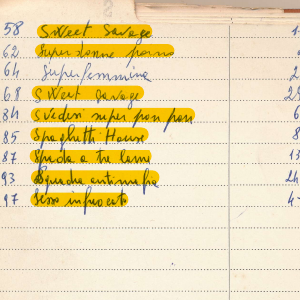 58 Sweet Savage 1
62 Superdonne porno
64 Superfemmine 2
68 Sweet Savage 29
84 Svedesi super pon pon 6
85 Spaghetti House 8
87 Spada a tre lame 13
93 Squadra antimafia 24
97 Sesso infuocato 4